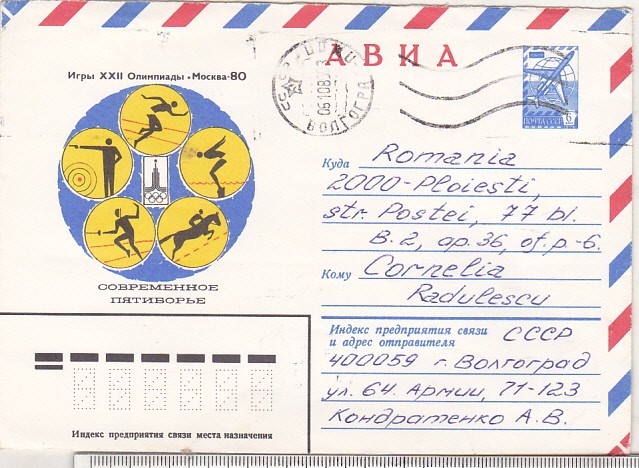 АВИА
Игры XXII Олимпиады • Москва-80
СОВРЕМЕННОЕ
ПЯТИБОРЬЕ
СССР
061080
ВОЛГОГРАД
ПОЧТА СССР 6
Куда Romania
2000-Ploiesti,
str. Postei, 77 bl.
B. 2, ap. 36, of. p-6.
Кому Cornelia
Radulescu
Индекс предприятия связи
и адрес отправителя СССР
400059 г. Волгоград
ул. 64. Армии, 71-123
Кондратенко А. В.
Индекс предприятия связи места назначения